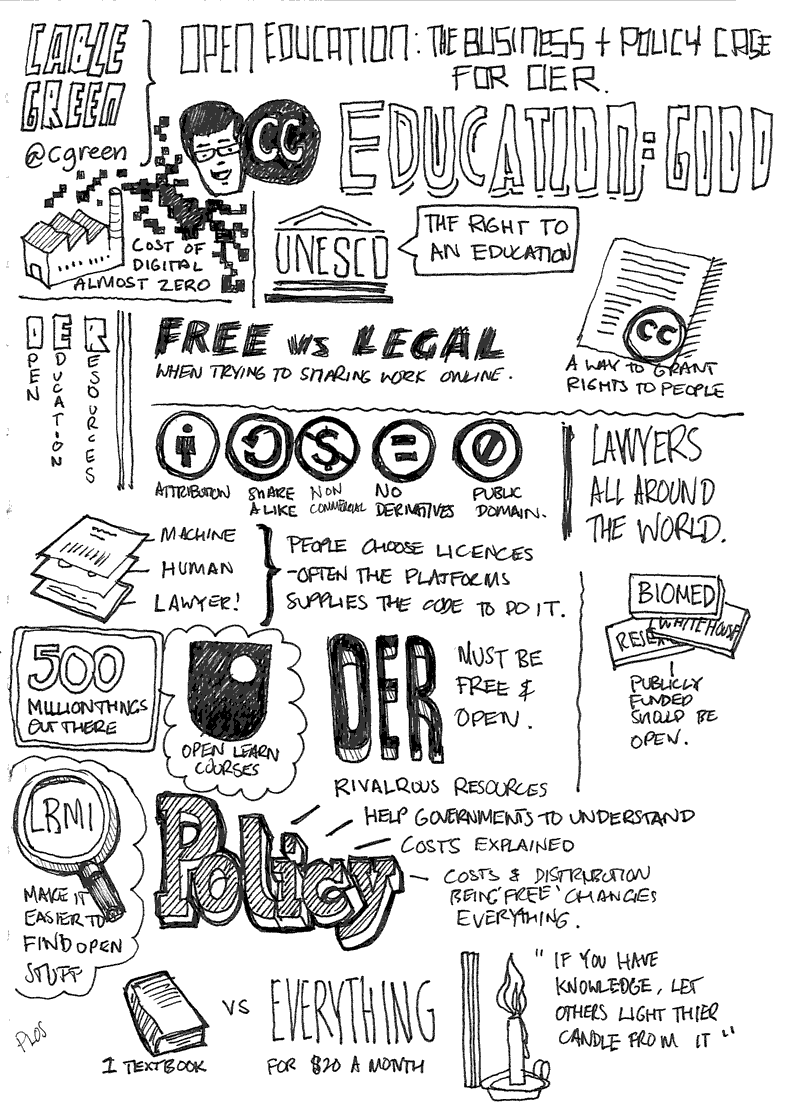 CABLE
GREEN
@cgreen
OPEN EDUCATION: THE BUSINESS + POLICY CASE
FOR OER.
CC
EDUCATION: GOOD
COST OF
DIGITAL
ALMOST ZERO
UNESCO
THE RIGHT TO
AN EDUCATION
CC
A WAY TO GRANT
RIGHTS TO PEOPLE
OPEN
EDUCATION
RESOURCES
FREE vs LEGAL
WHEN TRYING TO SHARING WORK ONLINE.
ATTRIBUTION
SHARE
ALIKE
NON
COMMERCIAL
NO
DERIVATIVES
PUBLIC
DOMAIN.
LAWYERS
ALL AROUND
THE WORLD.
MACHINE
HUMAN
LAWYER!
PEOPLE CHOOSE LICENCES
-OFTEN THE PLATFORMS
SUPPLIES THE CODE TO DO IT.
BIOMED
WHITEHOUSE
PUBLICLY
FUNDED
SHOULD BE
OPEN.
500
MILLION THINGS
OUT THERE
OPEN LEARN
COURSES
OER
MUST BE
FREE &
OPEN.
RIVALROUS RESOURCES
HELP GOVERNMENTS TO UNDERSTAND
COSTS EXPLAINED
COSTS & DISTRIBUTION
BEING 'FREE' CHANGES
EVERYTHING.
POLiCY
LRMI
MAKE IT
EASIER TO
FIND OPEN
STUFF
PLOS
1 TEXTBOOK
VS
EVERYTHING
FOR $20 A MONTH
"IF YOU HAVE
KNOWLEDGE, LET
OTHERS LIGHT THIER
CANDLE FROM IT"